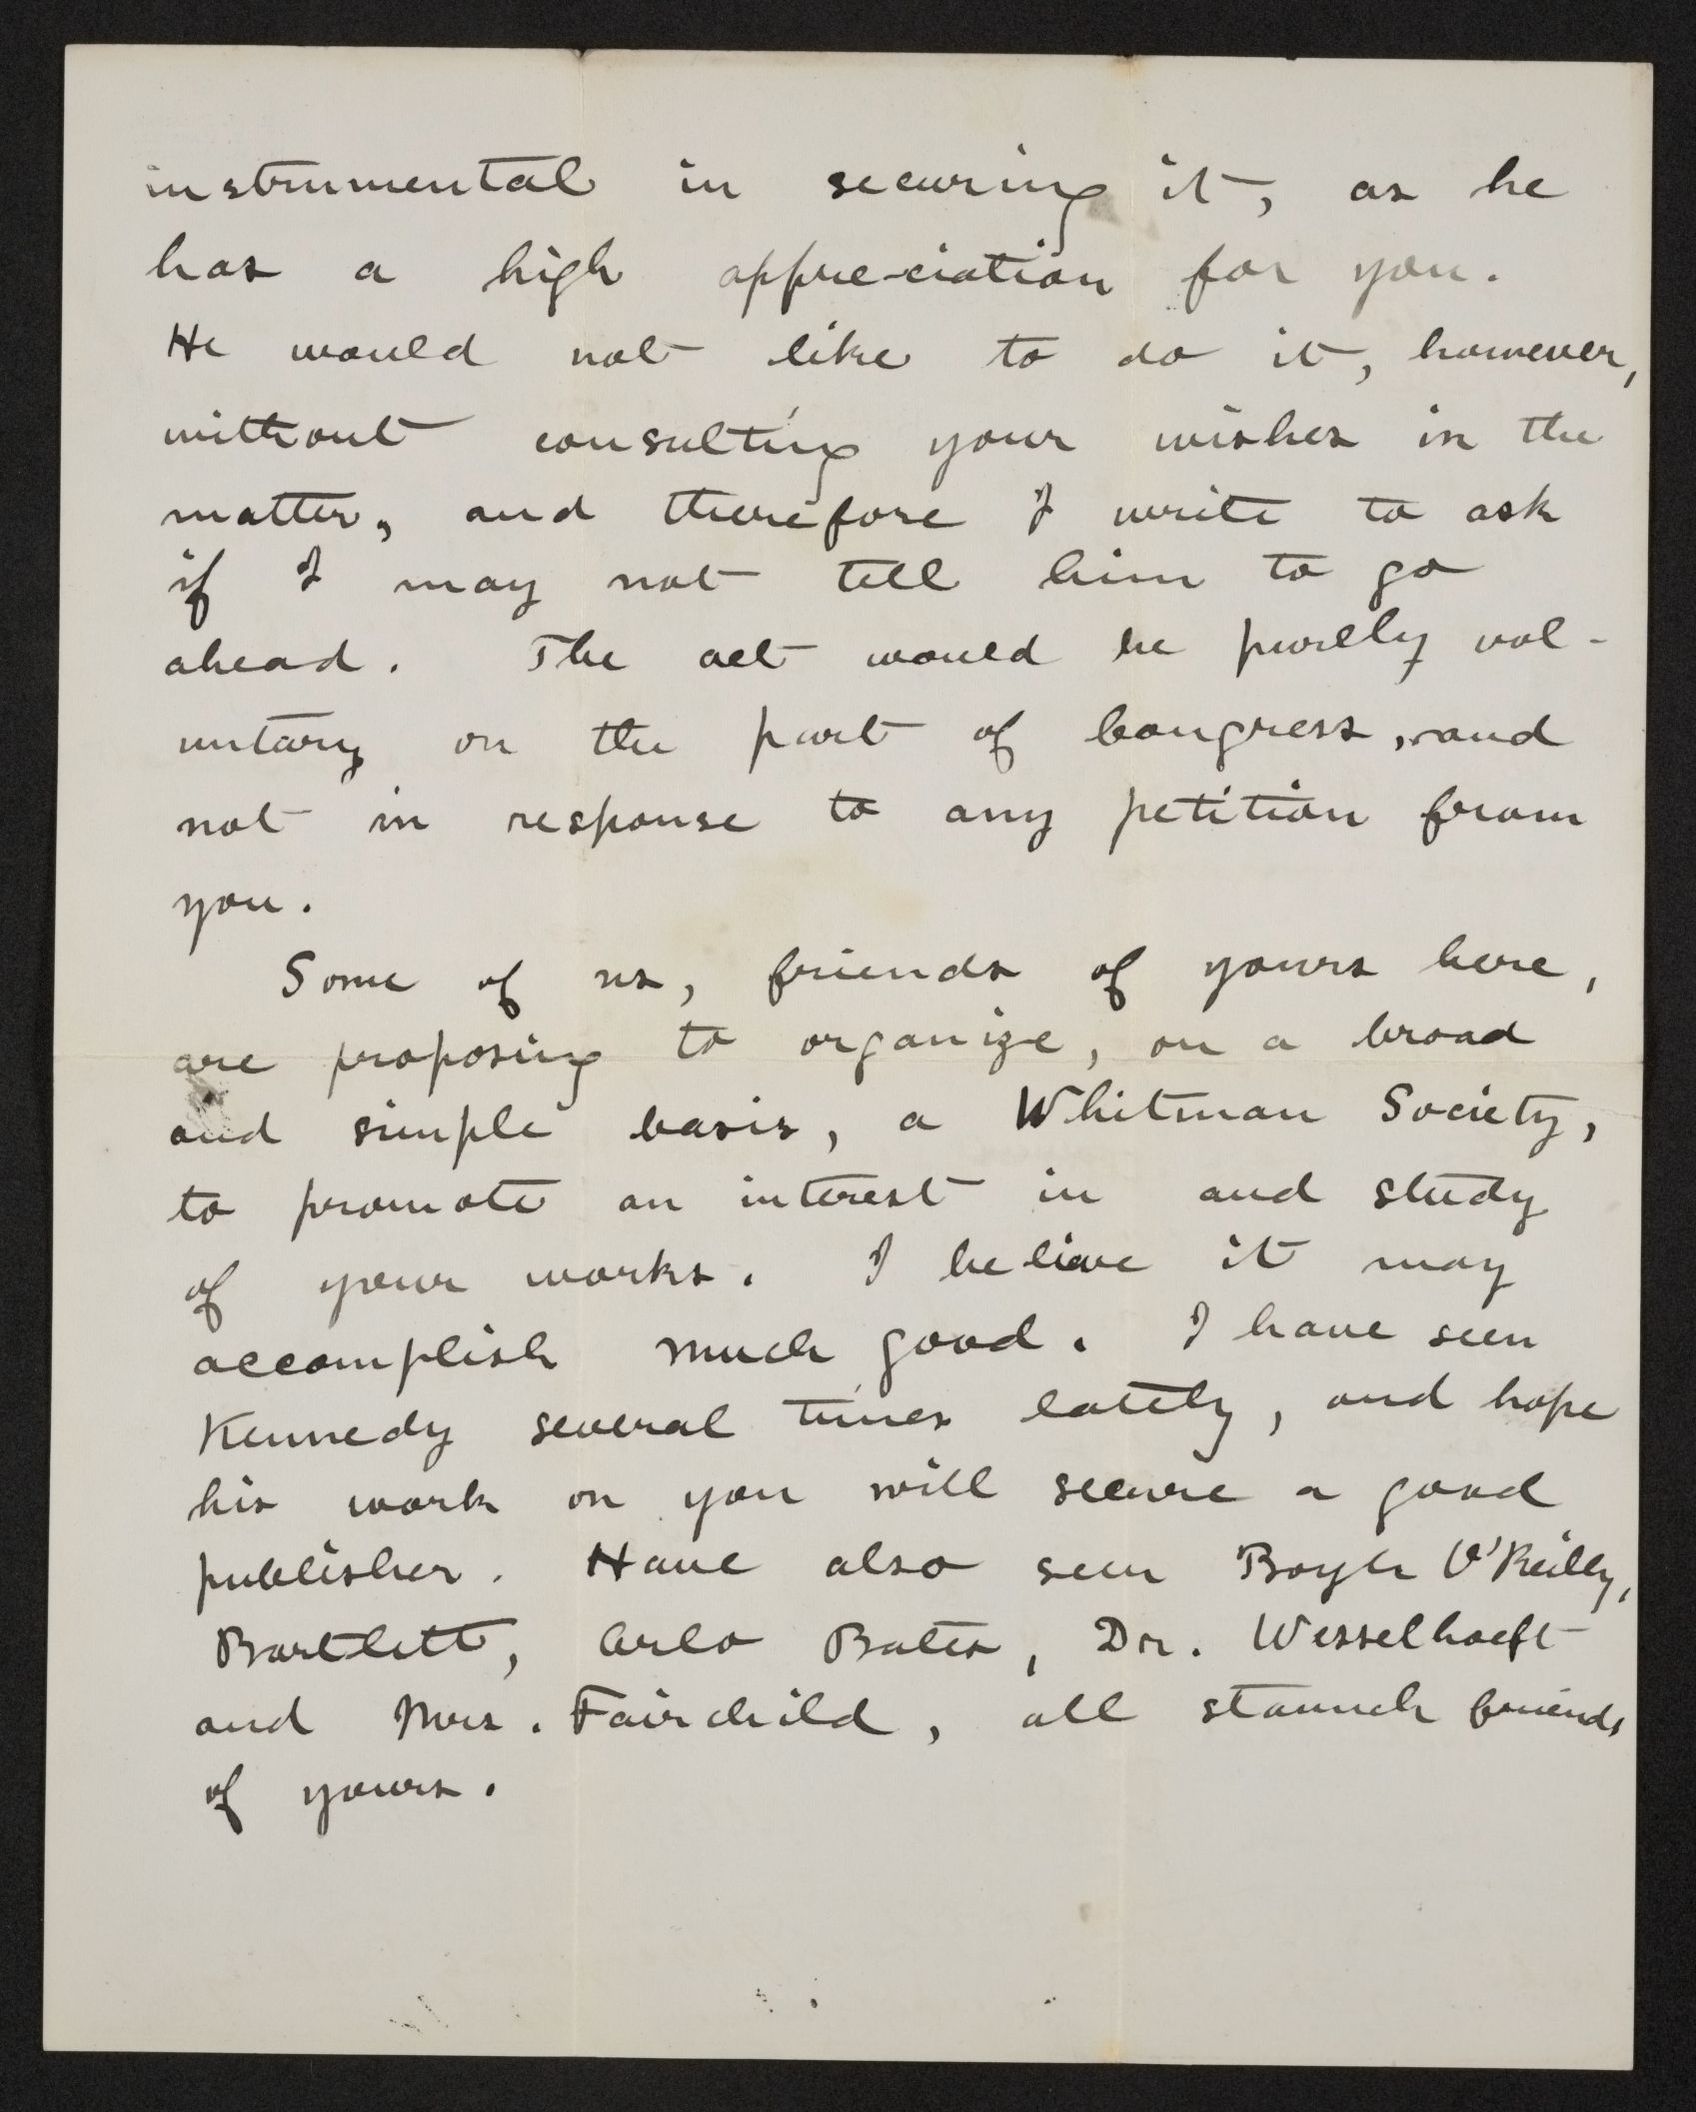 instrumental in securing it, as he
has a high appreciation for you.
He would not like to do it, however,
without consulting your wishes in the
matter, and therefore I write to ask
if I may not tell him to go
ahead. The act would be purely vol-
untary on the part of Congress, and
not in response to any petition from
you.
Some of us, friends of yours here,
are proposing to organize, on a broad
and simple basis, a Whitman Society,
to promote an interest in and study
of your works. I believe it may
accomplish much good. I have seen
Kennedy several times lately, and hope
his work on you will secure a good
publisher. Have also seen Boyle O'Reilly,
Bartlett, Arlo Bates, Dr. Wesselhoeft
and Mrs. Fairchild, all staunch friends
of yours.